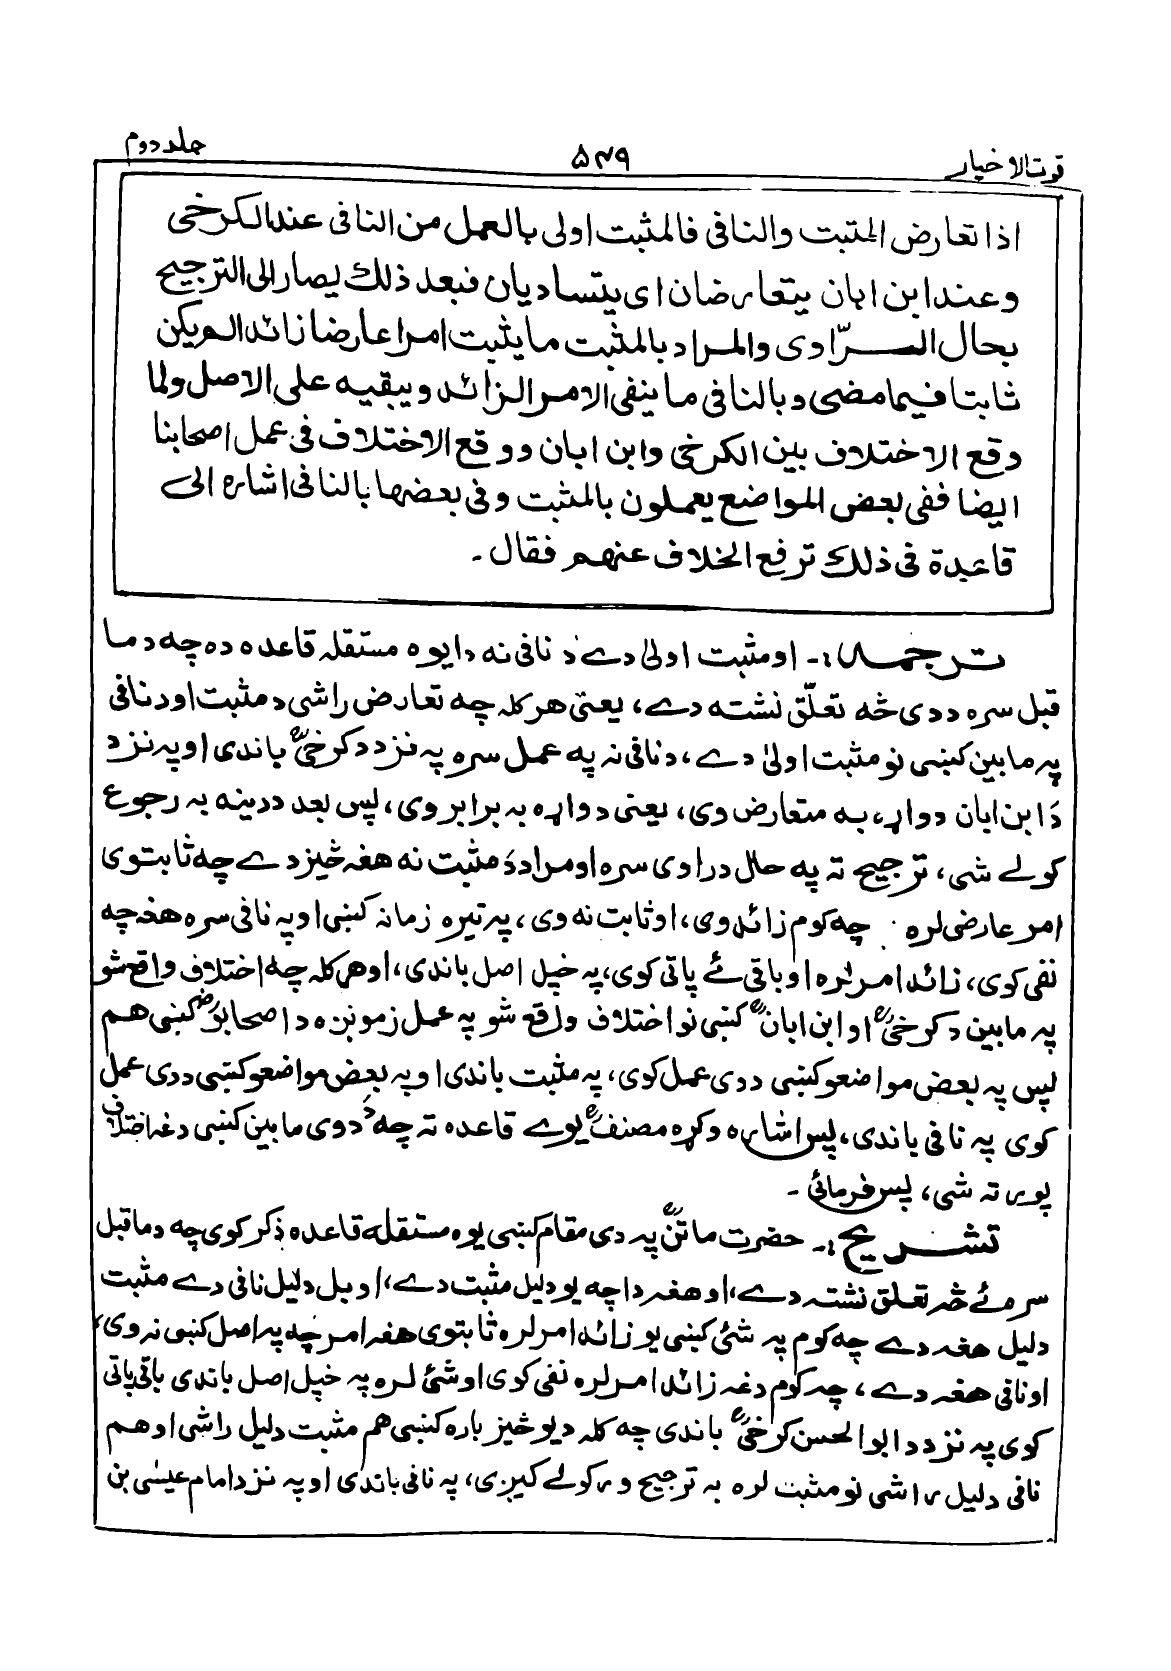 قوت الاخیار ۵۴۹ جلد دوم
اذا تعارض المثبت والنافی فالمثبت اولی بالعمل من النافی عند الکرخی
وعند ابن ابان یتعارضان ای یتساویان فبعد ذلک یصار الی الترجیح
بحال الراوی والمراد بالمثبت ما یثبت امرا عارضا زائدا لم یکن
ثابتا فیما مضی وبالنافی ما ینفی الامر الزائد ویبقیه علی الاصل ولما
وقع الاختلاف بین الکرخی وابن ابان ووقع الاختلاف فی عمل اصحابنا
ایضا ففی بعض المواضع یعملون بالمثبت وفی بعضها بالنافی اشاره الی
قاعدة فی ذلک ترفع الخلاف عنهم فقال۔
ترجمہ:۔ او مثبت اولیٰ دے دَ نافی نہ دا یوہ مستقلہ قاعدہ دہ چہ د ما
قبل سرہ ددی څه تعلّق نشتہ دے، یعنی هرکلہ چہ تعارض راشی د مثبت او د نافی
پہ مابین کښی نو مثبت اولیٰ دے، د نافی نہ پہ عمل سرہ پہ نزد د کرخیؒ باندی او پہ نزد
دَ ابن ابان دوارہ بہ متعارض وی، یعنی دوارہ بہ برابر وی، پس بعد ددینہ بہ رجوع
کولے شی، ترجیح تہ پہ حال د راوی سرہ او مراد دَ مثبت نہ هغہ څیز دے چہ ثابتوی
امر عارضی لرہ چہ کوم زائد وی، او ثابت نہ وی، پہ تیرہ زمانہ کښی او پہ نافی سرہ هغہ چہ
نفی کوی، زائد امر لرہ او باقی ئے پاتی کوی، پہ خپل اصل باندی، او هرکلہ چہ اختلاف واقع شو
پہ مابین د کرخیؒ او ابن ابانؒ کښی نو اختلاف واقع شو پہ عمل زمونږہ د اصحابو کښی هم
پس پہ بعض مواضعو کښی دوی عمل کوی، پہ مثبت باندی او پہ بعض مواضعو کښی دوی عمل
کوی پہ نافی باندی، پس اشارہ وکړہ مصنفؒ یوے قاعدہ تہ چہ دَ دوی مابین کښی دغہ اختلاف
پورتہ شی، پس فرمائی۔
تشریح:۔ حضرت ماتنؒ پہ دی مقام کښی یوہ مستقلہ قاعدہ ذکر کوی چہ د ماقبل
سرہ ئے څہ تعلق نشتہ دے، او هغہ دا چہ یو دلیل مثبت دے، او بل دلیل نافی دے مثبت
دلیل هغہ دے چہ کوم پہ شئ کښی یو زائد امر لرہ ثابتوی هغہ امر چہ پہ اصل کښی نہ وی،
او نافی هغہ دے، چہ کوم دغہ زائد امر لرہ نفی کوی او شئ لرہ پہ خپل اصل باندی باقی پاتی
کوی پہ نزد د ابو الحسن کرخیؒ باندی چہ کلہ د یو څیز بارہ کښی هم مثبت دلیل راشی او هم
نافی دلیل راشی نو مثبت لرہ بہ ترجیح ورکولے کیږی، پہ نافی باندی او پہ نزد امام عیسٰی بن